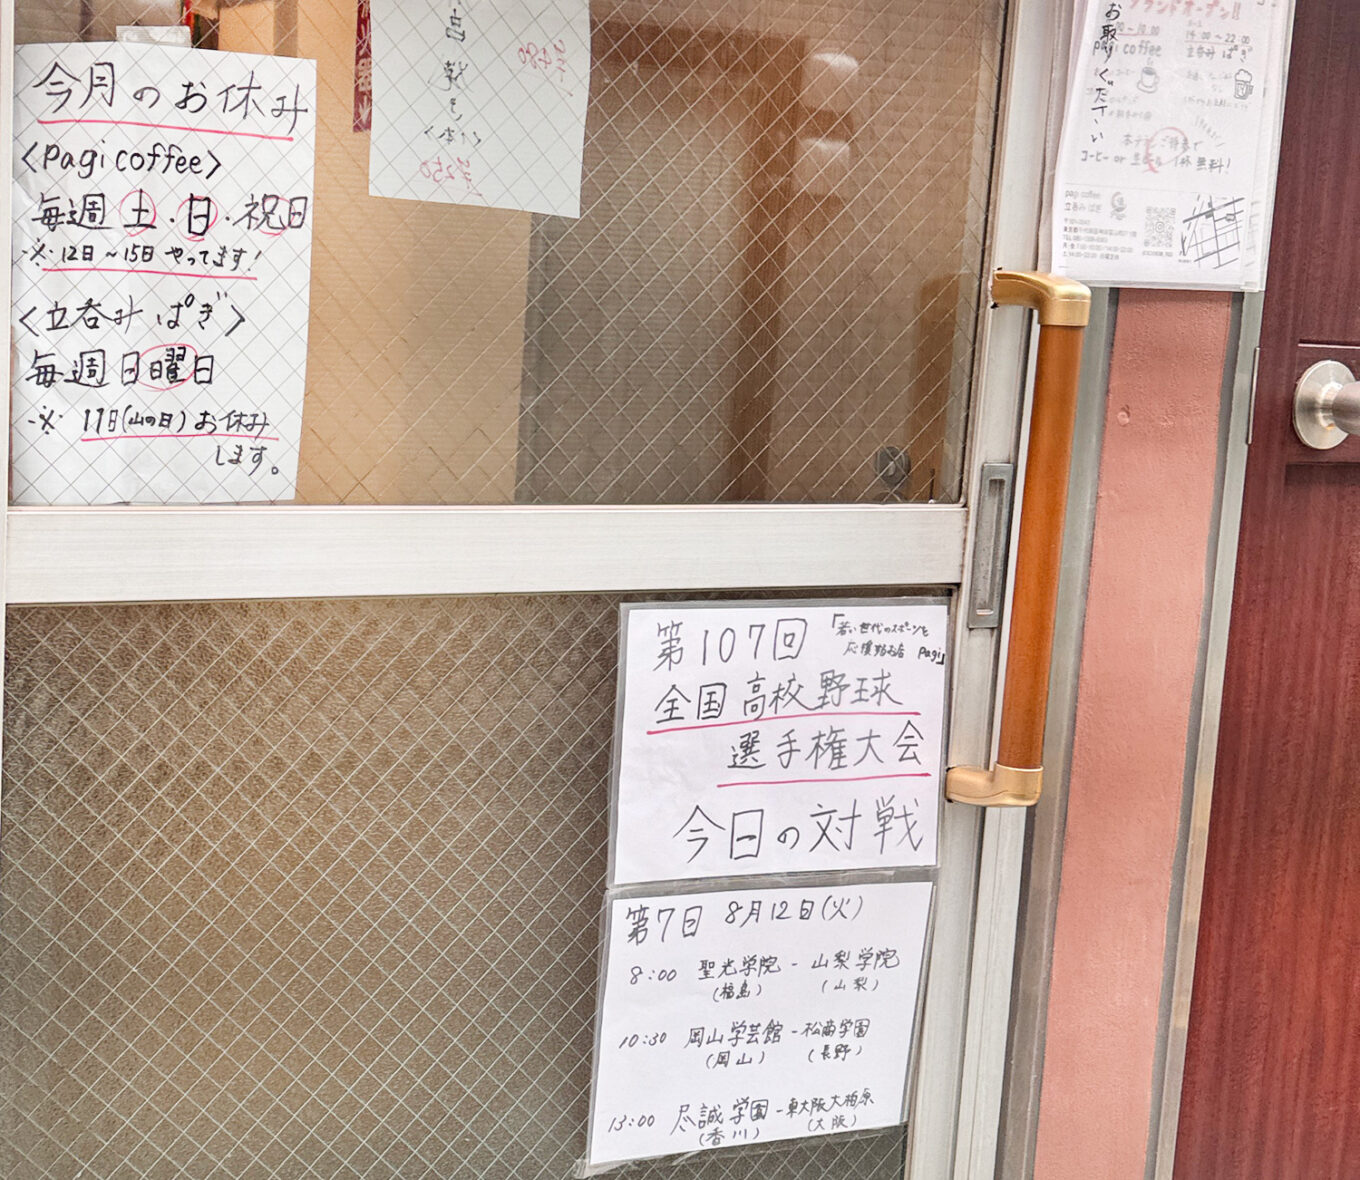 今月のお休み
〈pagi coffee〉
毎週土・日・祝日
※12日～15日やってます！
〈立呑みぱぎ〉
毎週日曜日
※11日(山の日)お休み
します。
¥480
¥250
グランドオープン!!
14:00～22:00
pagi coffee
立呑みぱぎ
コーヒー or
1杯無料!
pagi coffee
立呑みぱぎ
第107回
「若い世代のスポーツを
応援するお店 pagi」
全国高校野球
選手権大会
今日の対戦
第7日 8月12日(火)
8:00 聖光学院 - 山梨学院
(福島) (山梨)
10:30 岡山学芸館 - 松商学園
(岡山) (長野)
13:00 尽誠学園 - 東大阪大柏原
(香川) (大阪)